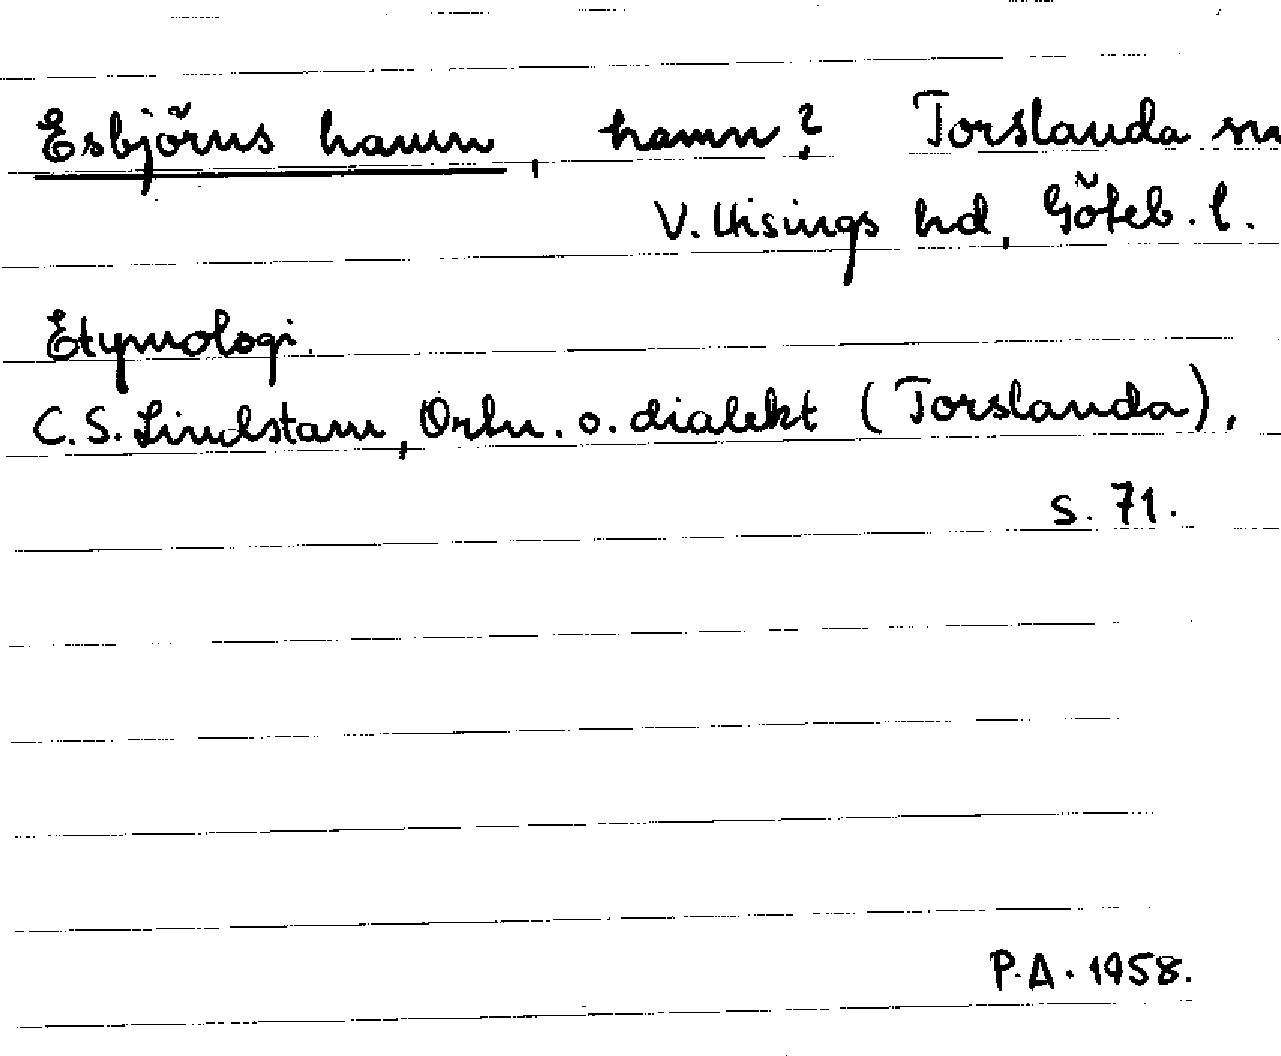 Esbjörns hamn, hamn? Torslanda sn
V. Hisings hd, Göteb. l.
Etymologi.
C. S. Lindstam, Ortn. o. dialekt (Torslanda),
s. 71.
P. A. 1958.